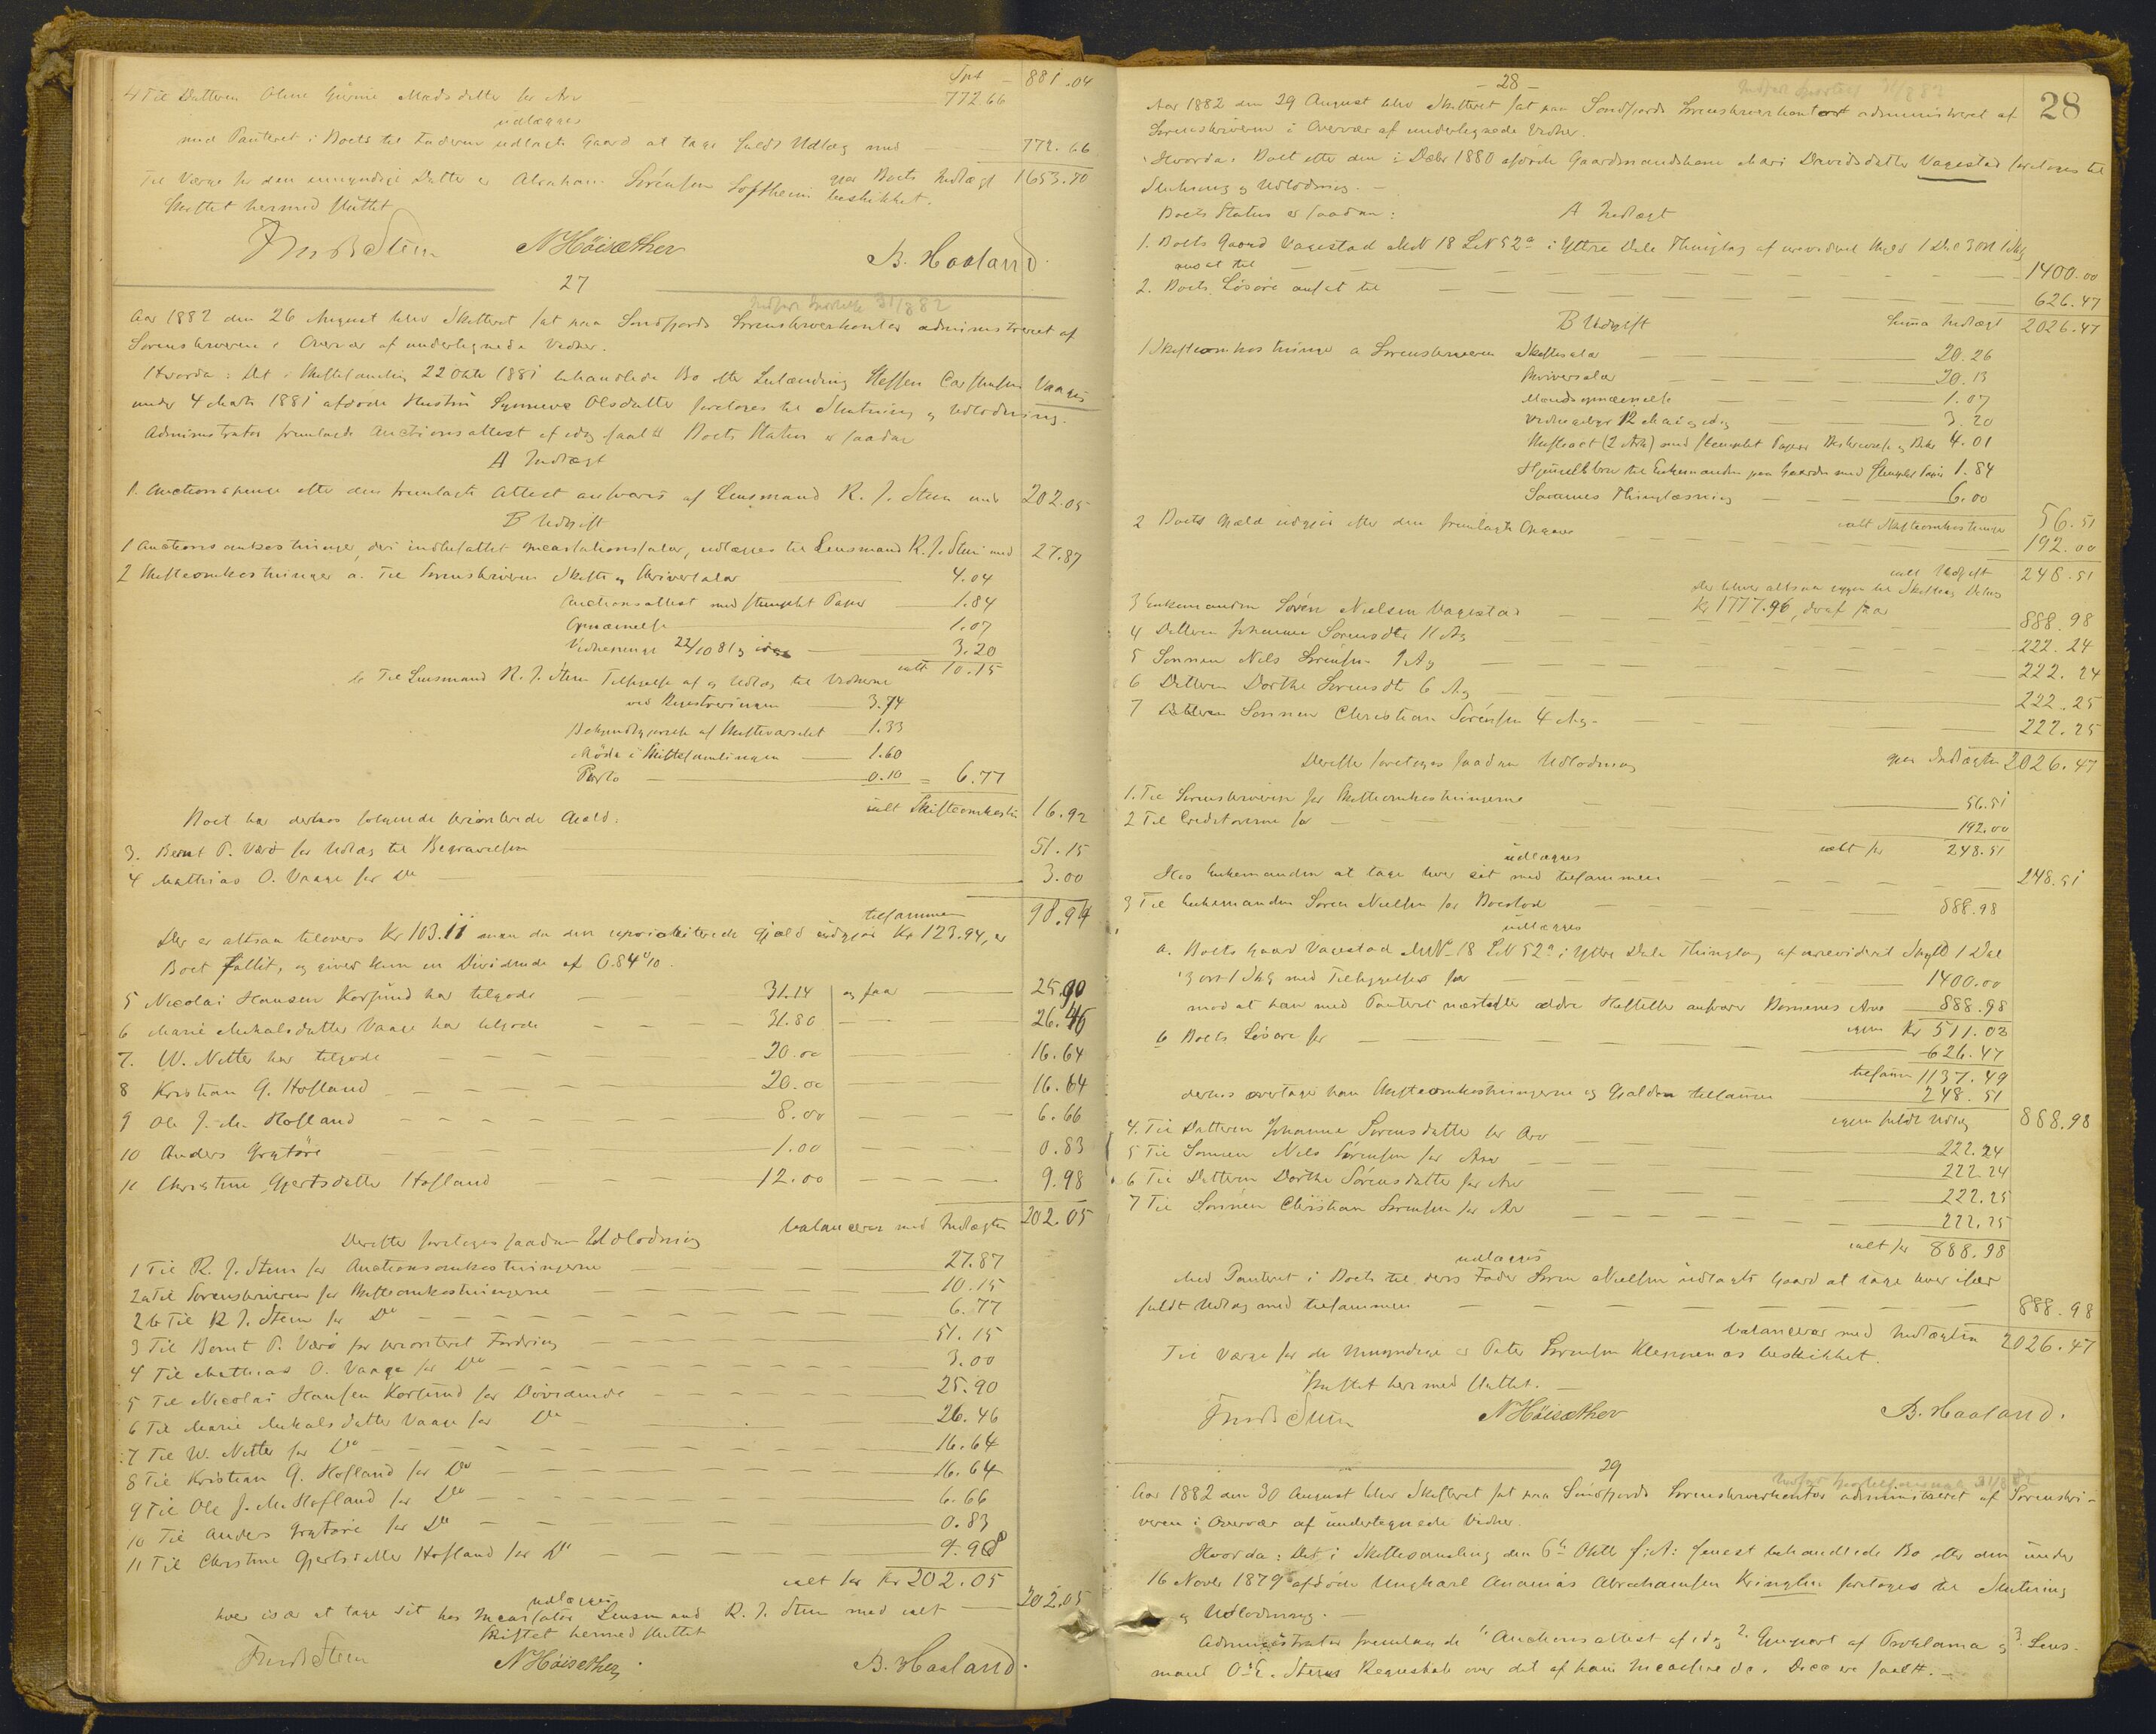 Trt – 881.04
4 Til Datteren Oline Gurine Madsdatter for Arv 772.66
udlægges
med Panteret i Boets til Faderen udlagte Gaard at tage fuldt Udlæg med 772.66
gjør Boets Indtægt 1653.70
Til Værge for den umyndige Datter er Abraham Sørensen Softheim beskikket.
Skiftet hermed sluttet
Stein NHöisæther B. Haaland
27
31/8 82
Aar 1882 den 26 August blev Skifteret sat paa Søndfjords Sorenskriverkontor administreret af
Sorenskriveren i Overvær af undertegnede Vidner.
Hvorda: Det i Skiftesamling 22 Oktb 1881 behandlede Bo efter Steffen Carstensen Vaages
under 4 Marts 1881 afdøde Hustru Synneve Olsdatter foretoges til Slutning og Udlodning.
Administrator fremlagde Auctionsattest af idag saal. Boets Status er saadan
A Indtægt
1. Auctionspenge efter den fremlagte Attest ansvares af Lensmand R. J. Stein med 202.05
B Udgift
1 Auctionsomkostninger, deri indbefattet Incassationssalær, udlægges til Lensmand R. J. Stein med 27.87
2 Skifteomkostninger a. Til Sorenskriveren Skifte og Skriversalær 4.04
Auctionsattest med stemplet Papir 1.84
Opnævnelse 1.07
Vidnepenge 22/10 81 og idag 3.20
ialt 10.15
b Til Lensmand R. J. Stein Tilsigelse af og Udlæg til Vidnerne
ved Registreringen 3.74
Bekjendtgjørelse af Skiftevarselet 1.33
Møde i Skiftesamlingen 1.60
Porto 0.10 = 6.77
ialt Skifteomkostn 16.92
Boet har derhos følgende prioriterede Gjæld:
3. Bernt P. Værø for Udlæg til Begravelsen 51.15
4 Mathias O. Vaage for Do 3.00
tilsammen 98.94
Der er altsaa tilovers Kr 103.11 men da den uprioriterede Gjæld udgjør Kr 123.94, er
Boet fallit, og giver kun en Dividende af
5 Nicolai Hansen Korssund har tilgode 31.14 og faar 25.90
6 Marie Mikalsdatter Vaage har tilgode 31.80 26.46
7. W. Nitter har tilgode 20.00 16.64
8 Kristian G. Hofland 20.00 16.64
9 Ole J. M. Hofland 8.00 6.66
10 Anders Grytøre 1.00 0.83
11 Christine Gjertsdatter Hofland 12.00 9.98
balancerer med Indtægten 202.05
Derefter foretoges saadan Udlodning
1 Til R. J. Stein for Auctionsomkostningerne 27.87
2a Til Sorenskriveren for Skifteomkostningerne 10.15
2b Til R J. Stein for Do 6.77
3 Til Bernt P. Værø for prioriteret Fordring 51.15
4 Til Mathias O. Vaage for Do 3.00
5 Til Nicolai Hansen Korssund for Dividende 25.90
6 Til Marie Mikalsdatter Vaage for Do 26.46
7 Til W. Nitter for Do 16.64
8 Til Kristian G. Hofland for Do 16.64
9 Til Ole J. M. Hofland for Do 6.66
10 Til Anders Grytøre for Do 0.83
11 Til Christine Gjertsdatter Hofland for Do 9.98
ialt for Kr 202.05
udlægges
hver især at tage sit hos Incassator Lensmand R. J. Stein med ialt 202.05
Skiftet hermed sluttet
Stein NHöisæther B. Haaland.
– 28 –
31/8 82
28
Aar 1882 den 29 August blev Skifteret sat paa Søndfjords Sorenskriverkontor administreret af
Sorenskriveren i Overvær af undertegnede Vidner.
Hvorda: Boet efter den i Decbr 1880 afdøde Gaardmandskone Mari Davidsdatter Vagestad foretoges til
Slutning og Udlodning. –
Boets Status er saadan: A Indtægt
1. Boets Gaard Vagestad MN 18 LN 52a i Yttre Dale Thinglag af urevideret Skyld 1 Dlr 3 Ort 1 Skg
ansat til 1400.00
2. Boets Løsøre ansat til 626.47
B Udgift Summa Indtægt 2026.47
1 Skifteomkostninger a Sorenskriveren Skiftesalær 20.26
Skriversalær 20.13
Mændsopnævnelse 1.07
Vidnegebyr 12 Mai og idag 3.20
Skifteact (2 Ark) med stemplet Papir Beskrivelse og 4.01
Hjemmelsbrev til Enkemanden paa Gaarden med Stemplet Papir 1.84
Sammes Thinglæsning 6.00
ialt Skifteomkostninger 56.51
2 Boets Gjæld udgjør efter den fremlagte Opgave 192.00
ialt Udgift 248.51
Der bliver altsaa igjen til Skifte og Deling
Kr 1777.96, deraf faar
3 Enkemanden Søren Nielsen Vagestad 888.98
4 Datteren Johanne Sørensdtr 11 Ag 222.24
5 Sønnen Nils Sørensen 9 Ag 222.24
6 Datteren Dorthe Sørensdtr 6 Ag 222.25
7 Sønnen Christian Sørensen 4 Ag. 222.25
gjør Indtægten 2026.47
Derefter foretoges saadan Udlodning
1. Til Sorenskriveren for Skifteomkostningerne 56.51
2 Til Creditorerne for 192.00
ialt for 248.51
udlægges
Hos Enkemanden at tage hver sit med tilsammen 248.51
3 Til Enkemanden Søren Nielsen for Boeslod 888.98
udlægges
a. Boets Gaard Vagestad MN 18 LN 52a i Yttre Dale Thinglag af urevideret Skyld 1 Dal
3 ort 1 Skg med Tilbyggelser for 1400.00
mod at han med Panteret næstefter ældre Heftelser ansvarer Børnenes Arv 888.98
igjen Kr 511.02
b Boets Løsøre for 626.47
tilsamm 1137.49
derhos overtager han Skifteomkostningerne og Gjælden tilsammen 248.51
igjen fuldt Udlæg 888.98
4. Til Datteren Johanne Sørensdatter for Arv 222.24
5 Til Sønnen Nils Sørensen for Arv 222.24
6 Til Datteren Dorthe Sørensdatter for Arv 222.25
7 Til Sønnen Christian Sørensen for Arv 222.25
ialt for 888.98
udlægges
Med Panteret i Boets til deres Fader Søren Nielsen udlagte Gaard at tage hver især
fuldt Udlæg med tilsammen 888.98
balancerer med Indtægten 2026.47
Til Værge for de Umyndige er Peter Sørensen Kleppenes beskikket.
Skiftet hermed sluttet. –
Stein NHöisæther B. Haaland.
29
31/8 82
Aar 1882 den 30 August blev Skifteret sat paa Søndfjords Sorenskriverkontor administreret af Sorenskri-
veren i Overvær af undertegnede Vidner.
Hvorda: Det i Skiftesamling den 6te Oktb f: A: senest behandlede Bo efter den under
16 Novbr 1879 afdøde Ungkarl Ananias Abrahamsen Kringlen foretoges til Slutning
og Udlodning. –
Administrator fremlagde 1. Auctionsattest af idag 2. Gjenpart af Proklama og 3. Lens-
mand O. E. Steins Regnskab over det af ham incasserede. Disse ere saal. –